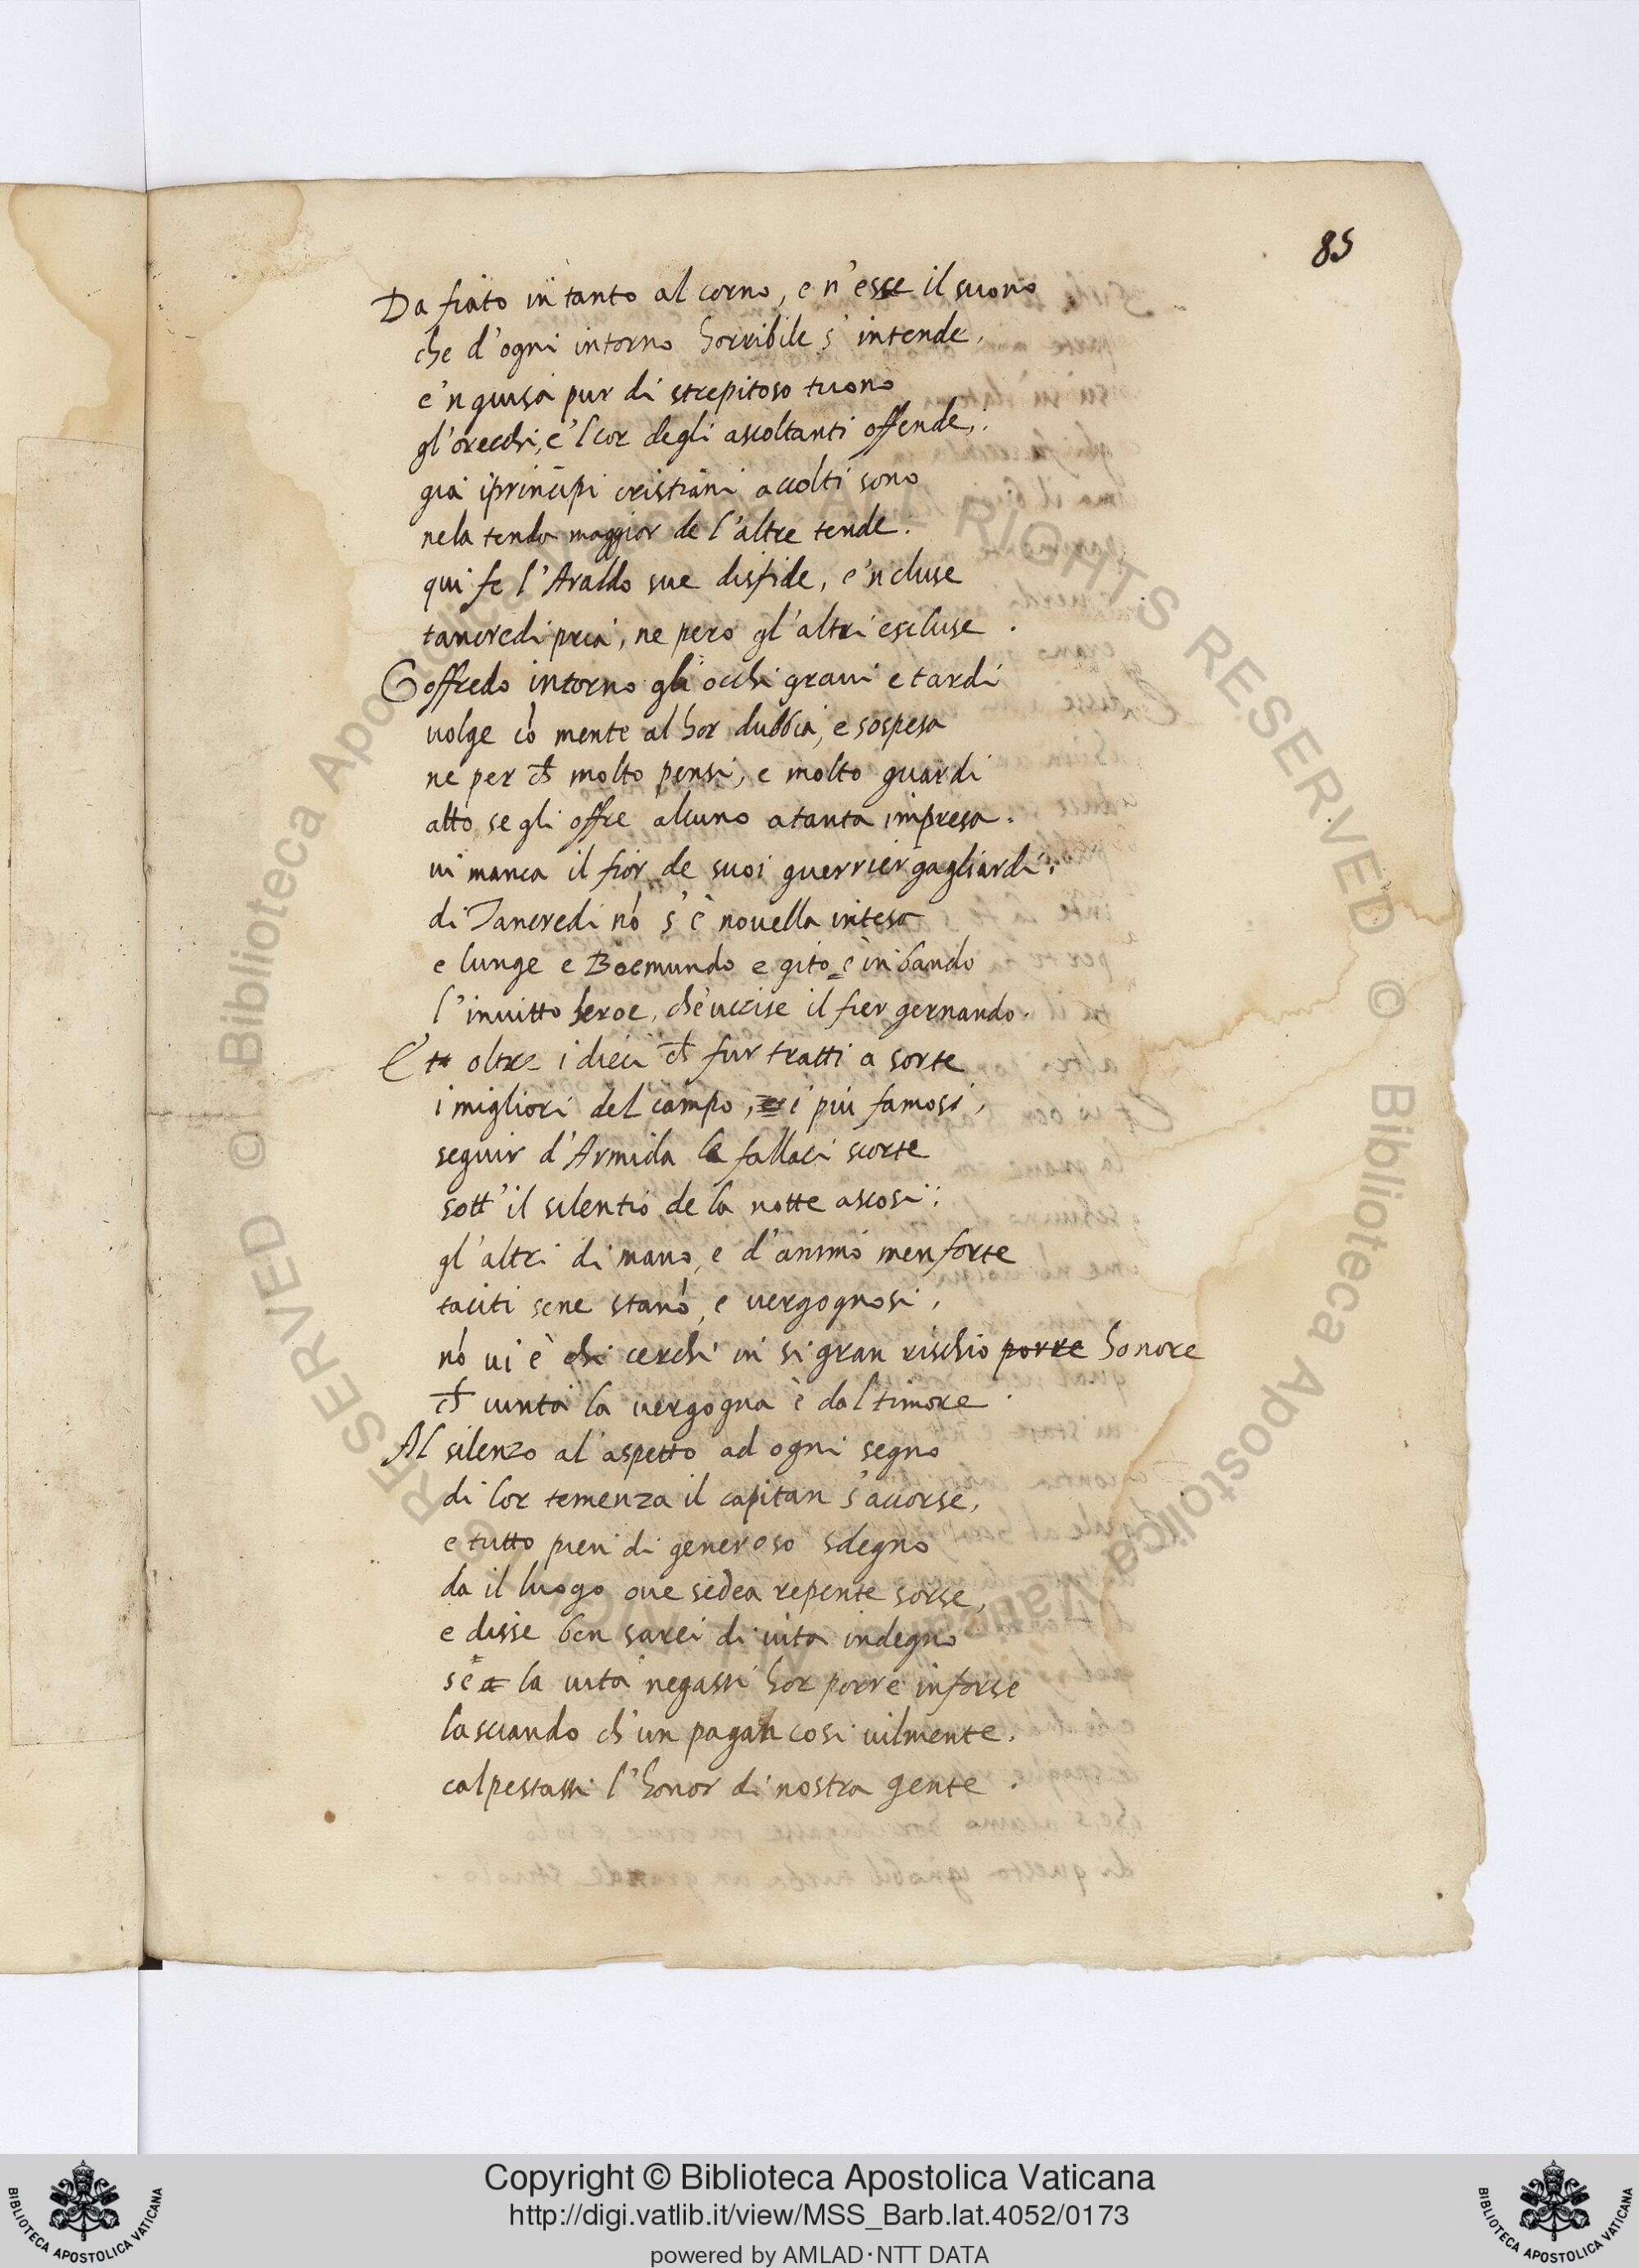 85
Da fiato in tanto al corno, e n'esce il suono
che d'ogni intorno horribile s'intende,
e'n guisa pur di strepitoso tuono
gl'orecchi, e'l cor degli ascoltanti offende;
gia i principi cristiani accolti sono
nela tenda maggior de l'altre tende.
qui fe l'Araldo sue disfide, e'ncluse
tancredi pria, ne pero gl'altri escluse.
Goffredo intorno gli occhi gravi e tardi
volge cō mente al hor dubbia, e sospesa
ne per ch̄ molto pensi, e molto guardi
atto se gli offre alcuno a tanta impresa.
vi manca il fior de suoi guerrier gagliardi:
di Tancredi nō s'è novella intesa
e lunge e Boemundo e gito è in bando
l'invitto heroe, ch'uccise il fier gernando.
Et oltre i dieci ch̄ fur tratti a sorte
i migliori del campo, e i più famosi,
seguir d'Armida le fallaci scorte
sott'il silentio de la notte ascosi:
gl'altri di mano, e d'animo men forte
taciti sene stanō, e vergognosi,
nō vi è chi cerchi in si gran rischio porre honore
ch̄ vinta la vergogna è dal timore.
Al silenzo al aspetto ad ogni segno
di lor temenza il capitan s'accorse,
e tutto pien di generoso sdegno
da il luogo ove sedea repente sorse,
e disse ben sarei di vita indegno
se la vita negassi hor porre inforse
lasciando ch'un pagan cosi vilmente.
calpestassi l'honor di nostra gente.
© Biblioteca Apostolica Vaticana ALL RIGHTS RESERVED
Copyright © Biblioteca Apostolica Vaticana
http://digi.vatlib.it/view/MSS_Barb.lat.4052/0173
powered by AMLAD·NTT DATA
BIBLIOTECA APOSTOLICA VATICANA
BIBLIOTECA APOSTOLICA VATICANA